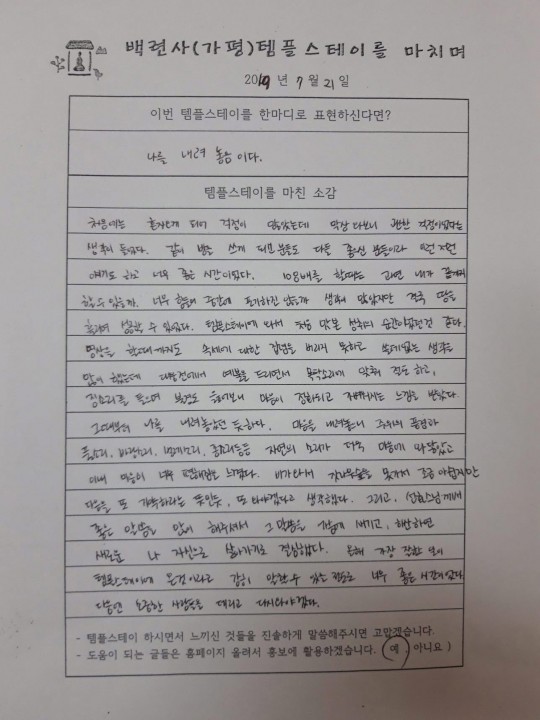 백련사(가평)템플스테이를 마치며
2019 년 7 월 21 일
이번 템플스테이를 한마디로 표현하신다면?
나를 내려 놓음 이다.
템플스테이를 마친 소감
처음에는 혼자오게 되어 걱정이 많았는데 막상 다보니 괜한 걱정이었다는
생각이 들었다. 같이 방을 쓰게 되고 분들도 다들 좋신 분들이라 편 자연
얘기도 하고 너무 좋은 시간이었다. 108배를 할때는 과연 내가 끝까지
할 수 있을까. 너무 힘들어 중간에 포기하진 않을까 생각이 많았지만 결국 땀을
흘리며 성공할 수 있었다. 템플스테이에 와서 처음 맛본 성취의 순간이었던것 같다.
명상을 할때까지도 속세에 대한 집념을 버리지 못하고 쓸데없는 생각을
많이 했는데 대웅전에서 예불을 드리면서 목탁소리에 맞춰 절도 하고,
징소리를 들으며 마음이 정화되고 차분해지는 느낌을 받았다.
그때부터 나를 내려놓았던 듯하다. 마음을 내려놓으니 주위의 풍경과
물소리, 바람소리, 새소리, 풀소리등등 자연의 소리가 더욱 마음에 와닿았고
이내 마음이 너무 편해짐을 느꼈다. 비가와서 못가서 조금 아쉽지만
다음을 또 기약하라는 뜻인듯, 또 와야겠다고 생각했다. 그리고, 선효스님께서
좋은 말씀을 많이 해주셔서 그 말씀을 가슴에 새기고, 하산하면
새로운 나 자신으로 살아가기로 결심했다. 올해 가장 잘한 일이
템플스테이에 온것이라고 감히 말할수 있는 정도로 너무 좋은 시간이었다
다음엔 소중한 사람들을 데리고 다시와야겠다.
- 템플스테이 하시면서 느끼신 것들을 진솔하게 말씀해주시면 고맙겠습니다.
- 도움이 되는 글들은 홈페이지 올려서 홍보에 활용하겠습니다. ( 예, 아니요 )